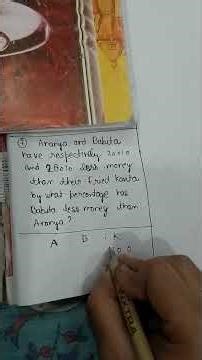 Aranya and Babita
have respectively 20%
and 28% less money
than their fried Kavita
by what percentage has
Babita less money than
Aranya?
A B : K